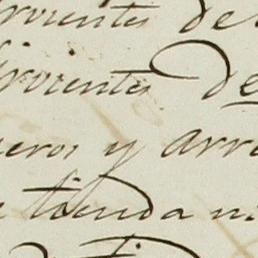 rvientes de
irvientes de
eros y arre
tienda ni